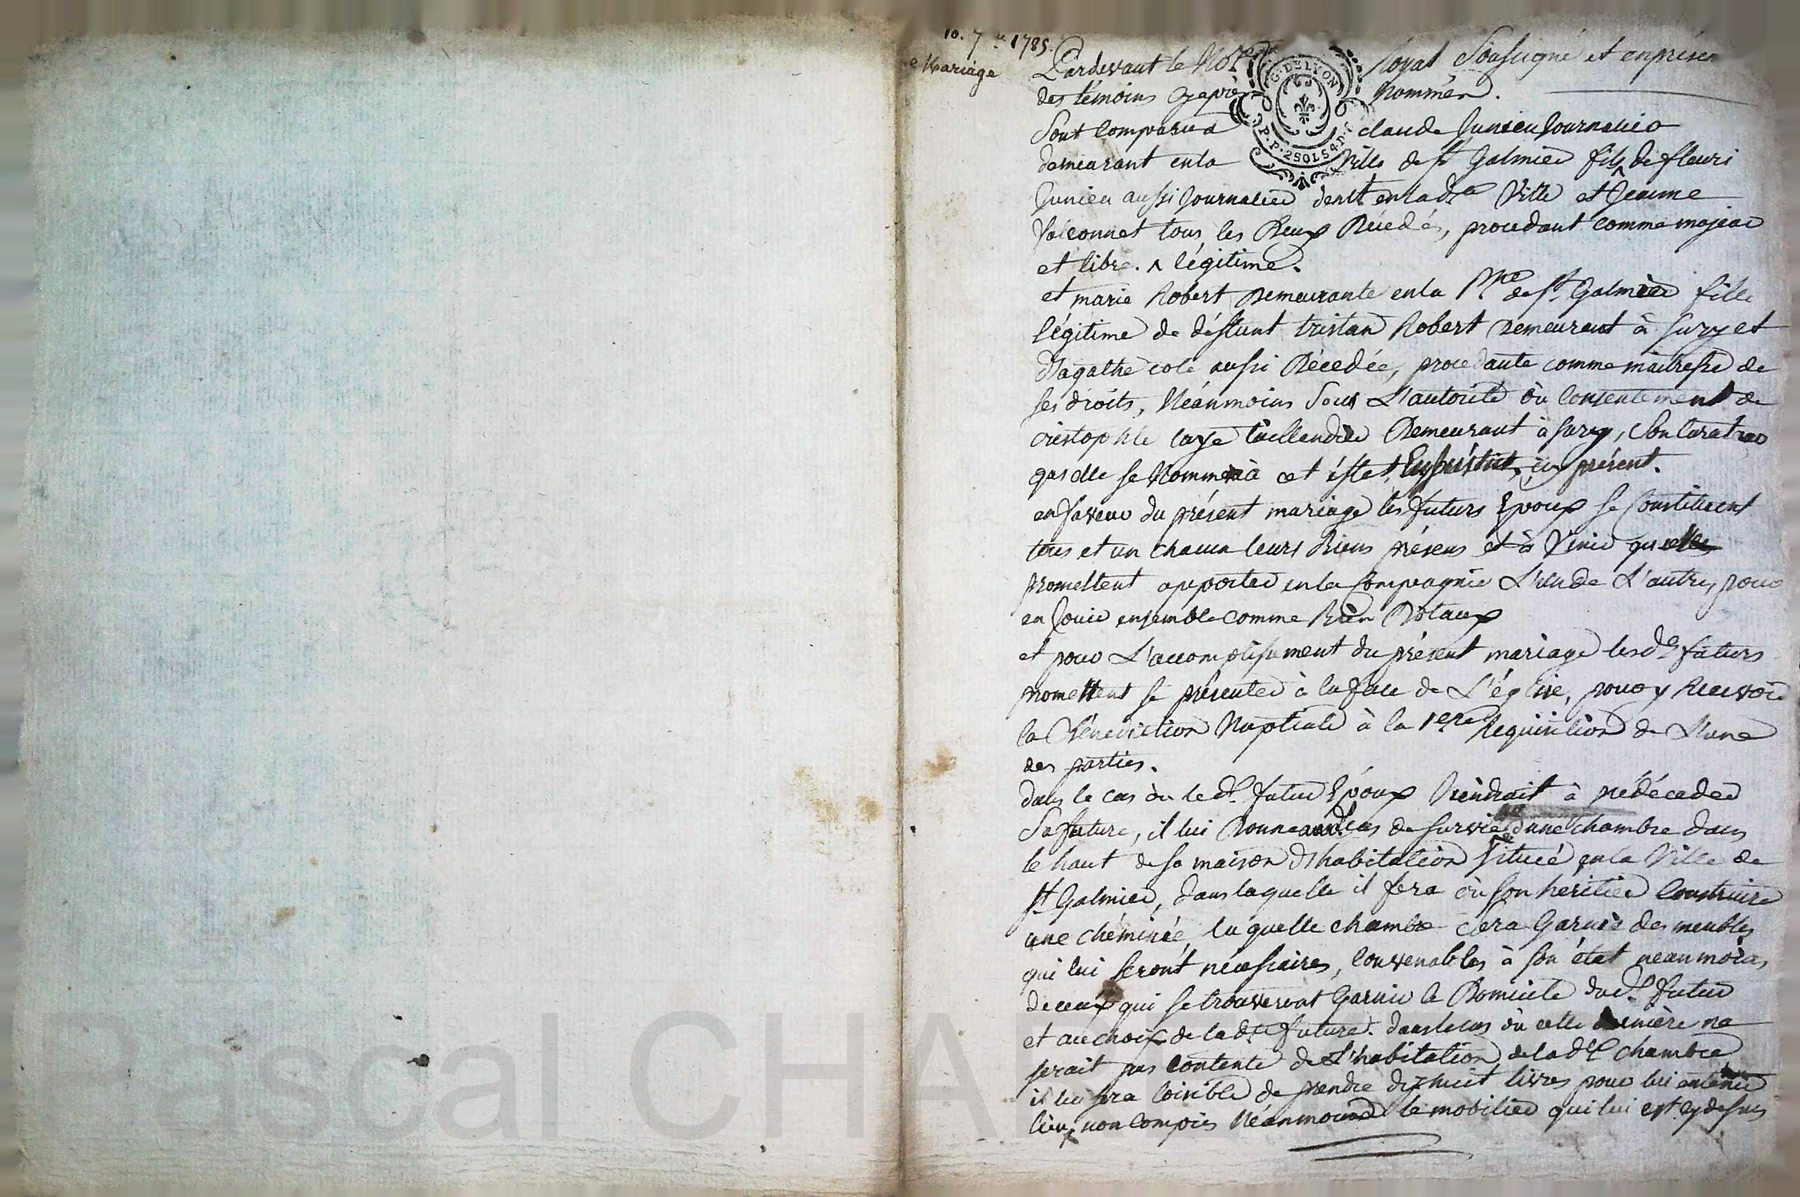 10. 7.re 1785.
Mariage
Pardevant le Not.re Royal Soussigné et en présen
des témoins cy après Nommés.
Sont comparus claude Junieu Journalier
demeurant en la Ville de St Galmier fils de fleuri
Junieu aussi Journalier en lad.e Ville et Jeanne
tous les Deux Décedés, procedant comme majeur
et libre. ^ légitime.
et marie Robert Demeurante en la P.sse de St Galmier fille
légitime de défunt tristan Robert demeurant à Sury et
D'agathe cole aussi Décedée, procedante comme maitresse de
ses droits, Néanmoins Sous L'autorité ou Consentement de
cristophle Demeurant à Sury, Son Curateur
qu'elle se Nomme à cet éffet, icy présent.
en faveur du présent mariage les futurs Epoux se Constituent
tous et un chacun leurs Biens présens et à Venir qu'
promettent apporter en la Compagnie L'un de L'autre, pour
en Jouir ensemble comme Bien Dotaux
et pour L'accomplissement du présent mariage lesd.s futurs
promettent se présenter à la face de L'église, pour y Recevoir
la Bénédiction Nuptiale à la 1ere Réquisition de L'une
des parties.
dans le cas ou led. futur Epoux Viendrait à prédéceder
Sa future, il lui Donne de survie d'une chambre dans
le haut de sa maison D'habitation située en la Ville de
St Galmier, dans laquelle il fera ou son héritier Construire
une chéminée, laquelle chambre sera Garnie des meubles
qui lui seront nécessaires, Convenables à son état néanmoins,
de ceux qui se trouveront Garnir le Domicile dud. futur
et au choix de lad.te future. dans le cas ou cette dernière ne
serait pas Contente de L'habitation de lad.te chambre
il lui sera loisible de prendre dix huit livres pour lui en tenir
lieu, non compris Néanmoins le mobilier qui lui est cy dessus
G. DE LYON
P.P. 2 SOLS 4 D.
Pascal CHA